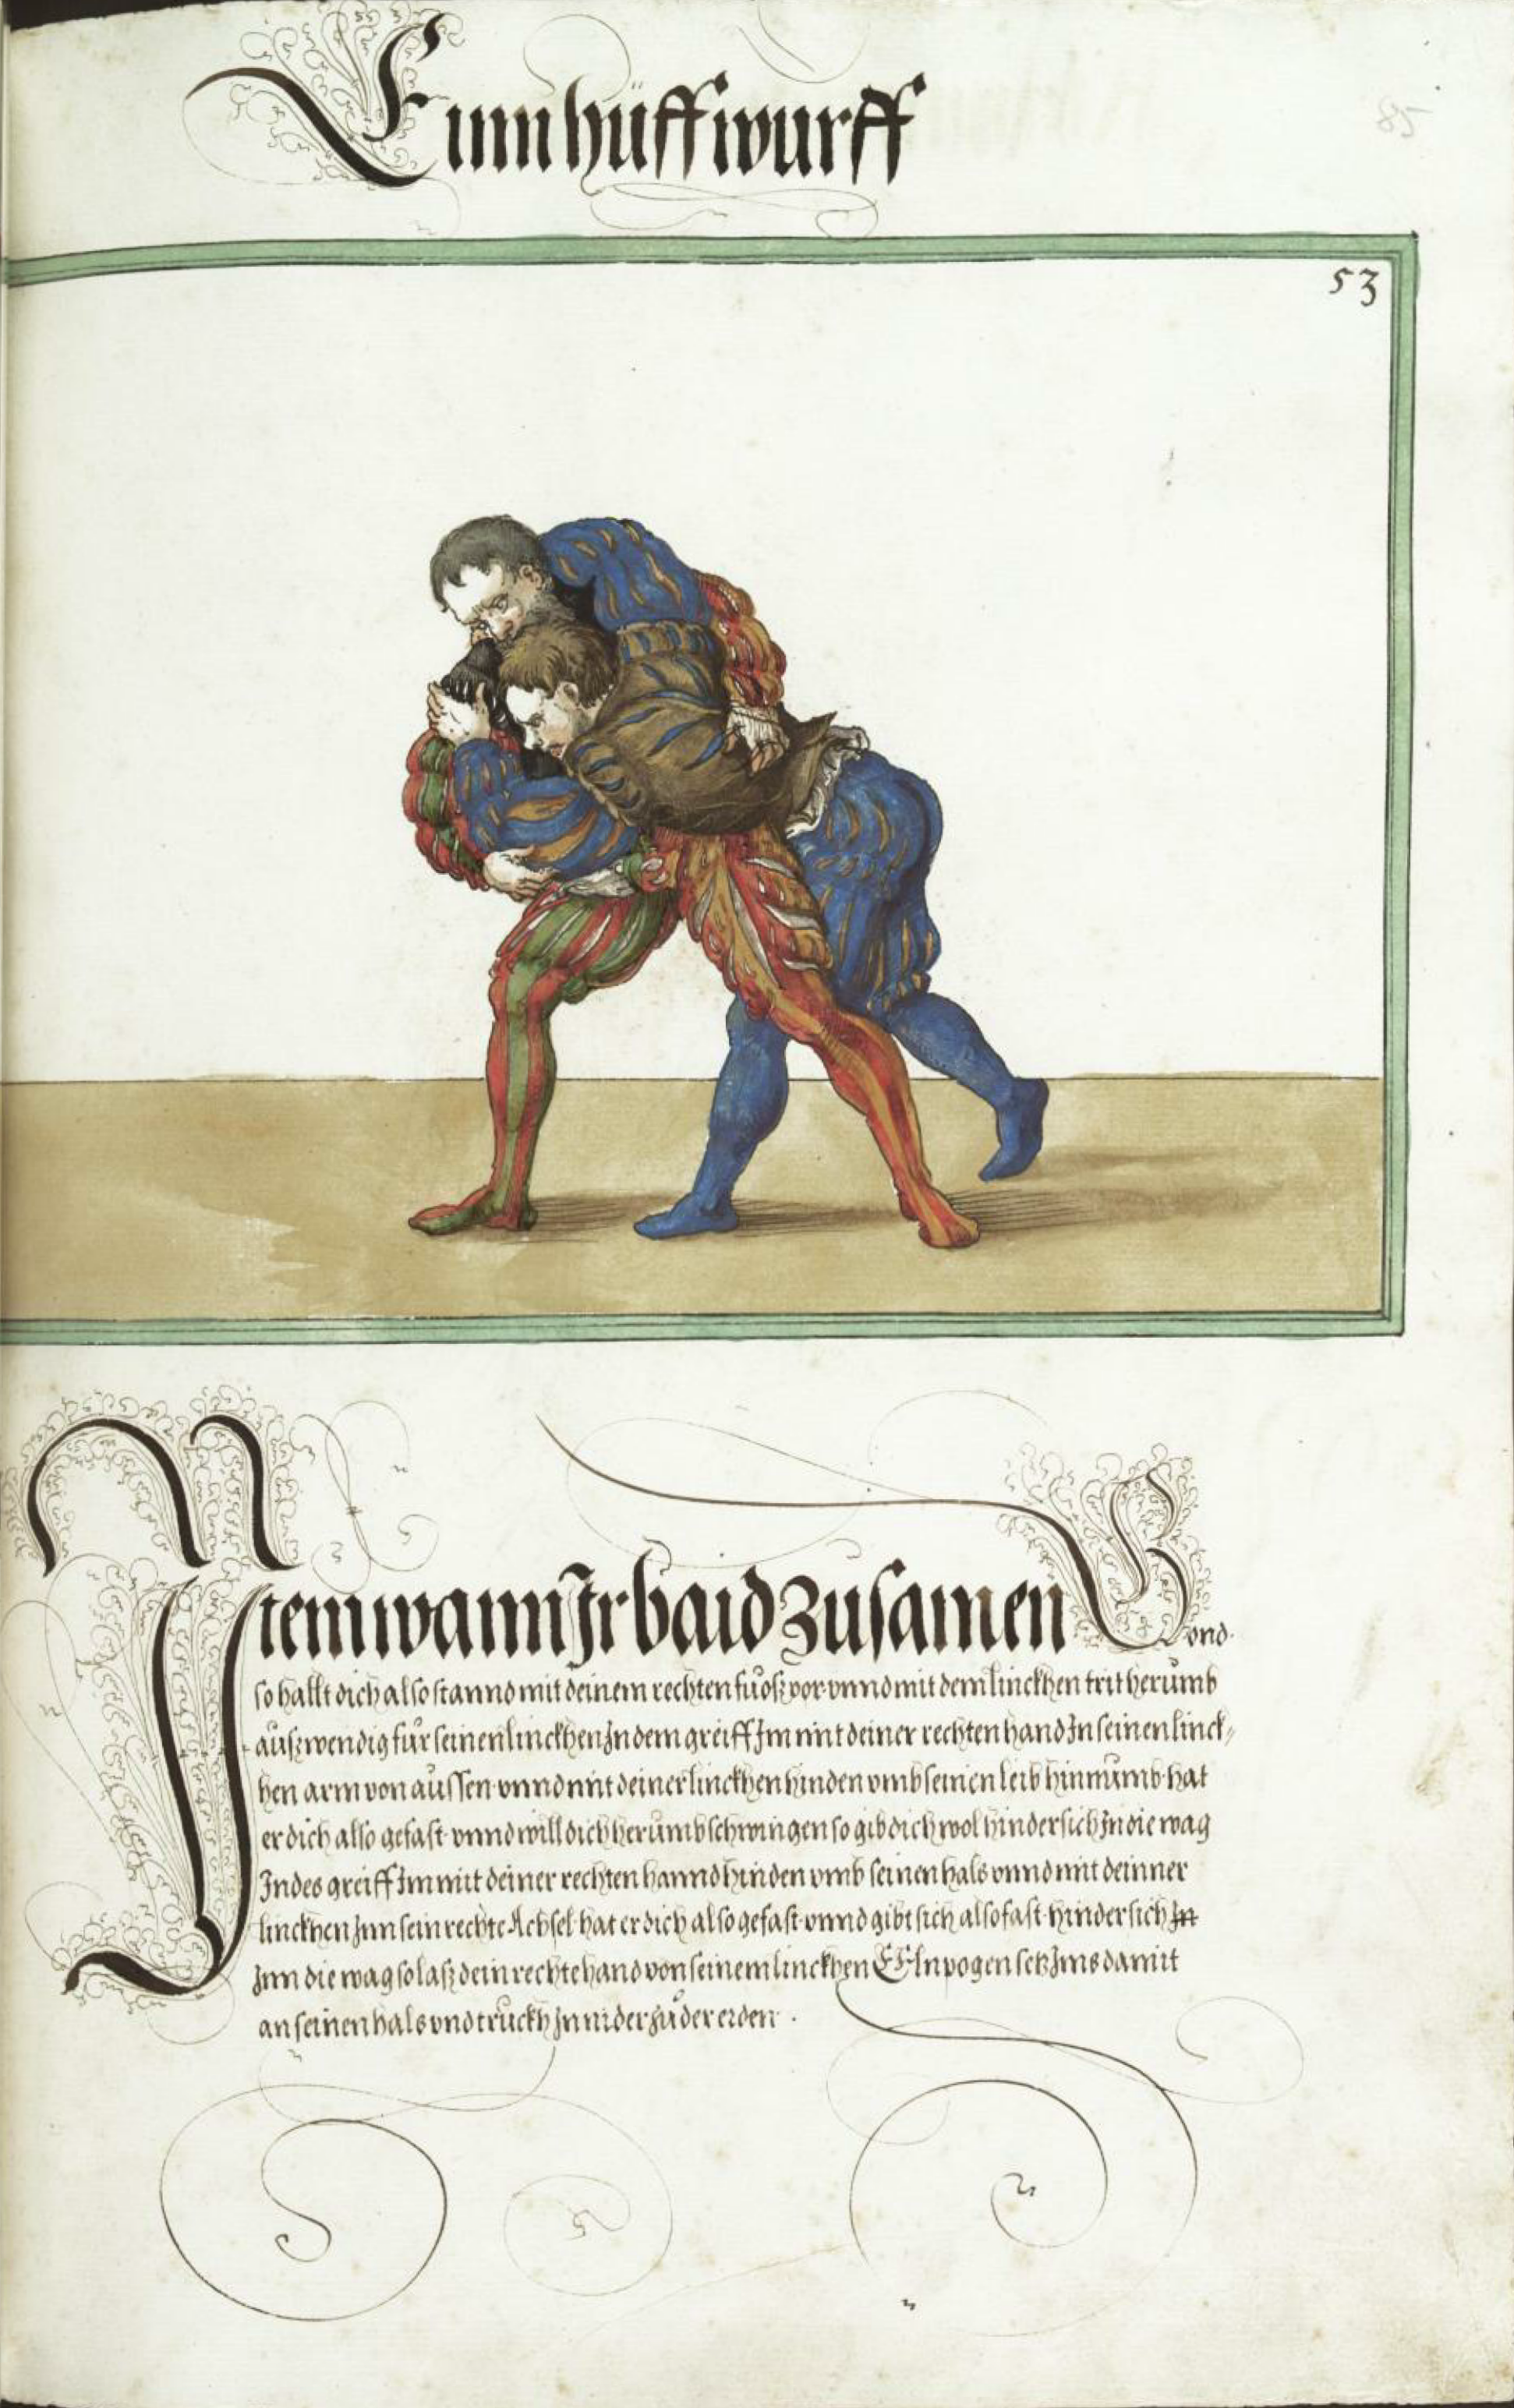 Einn hüffwurff
85
53
Item wann Ir baid zusamen Gond
so hallt dich also stannd mit deinem rechten fuͦosz vor vnnd mit dem linckhen trit herumb
auszwendig fur seinen linckhen Indem greiff Im mit deiner rechten hand In seinen linck⸗
hen arm von aussen vnnd mit deiner linckhen hinden vmb seinen leib hinnumb hat
er dich also gefast vnnd will dich herumb schwingen so gib dich wol hindersich In die wag
Indes greiff Im mitt deiner rechten hannd hinden vmb seinen hals vnnd mit deinner
linckhen Inn sein rechte Achsel hat er dich also gefast vnnd gibt sich also fast hindersich In
Inn die wag so lasz dein rechte hand von seinem linckhen Elnpogen setz Ims damit
an seinen hals vnd truckh In nider zu der erden .